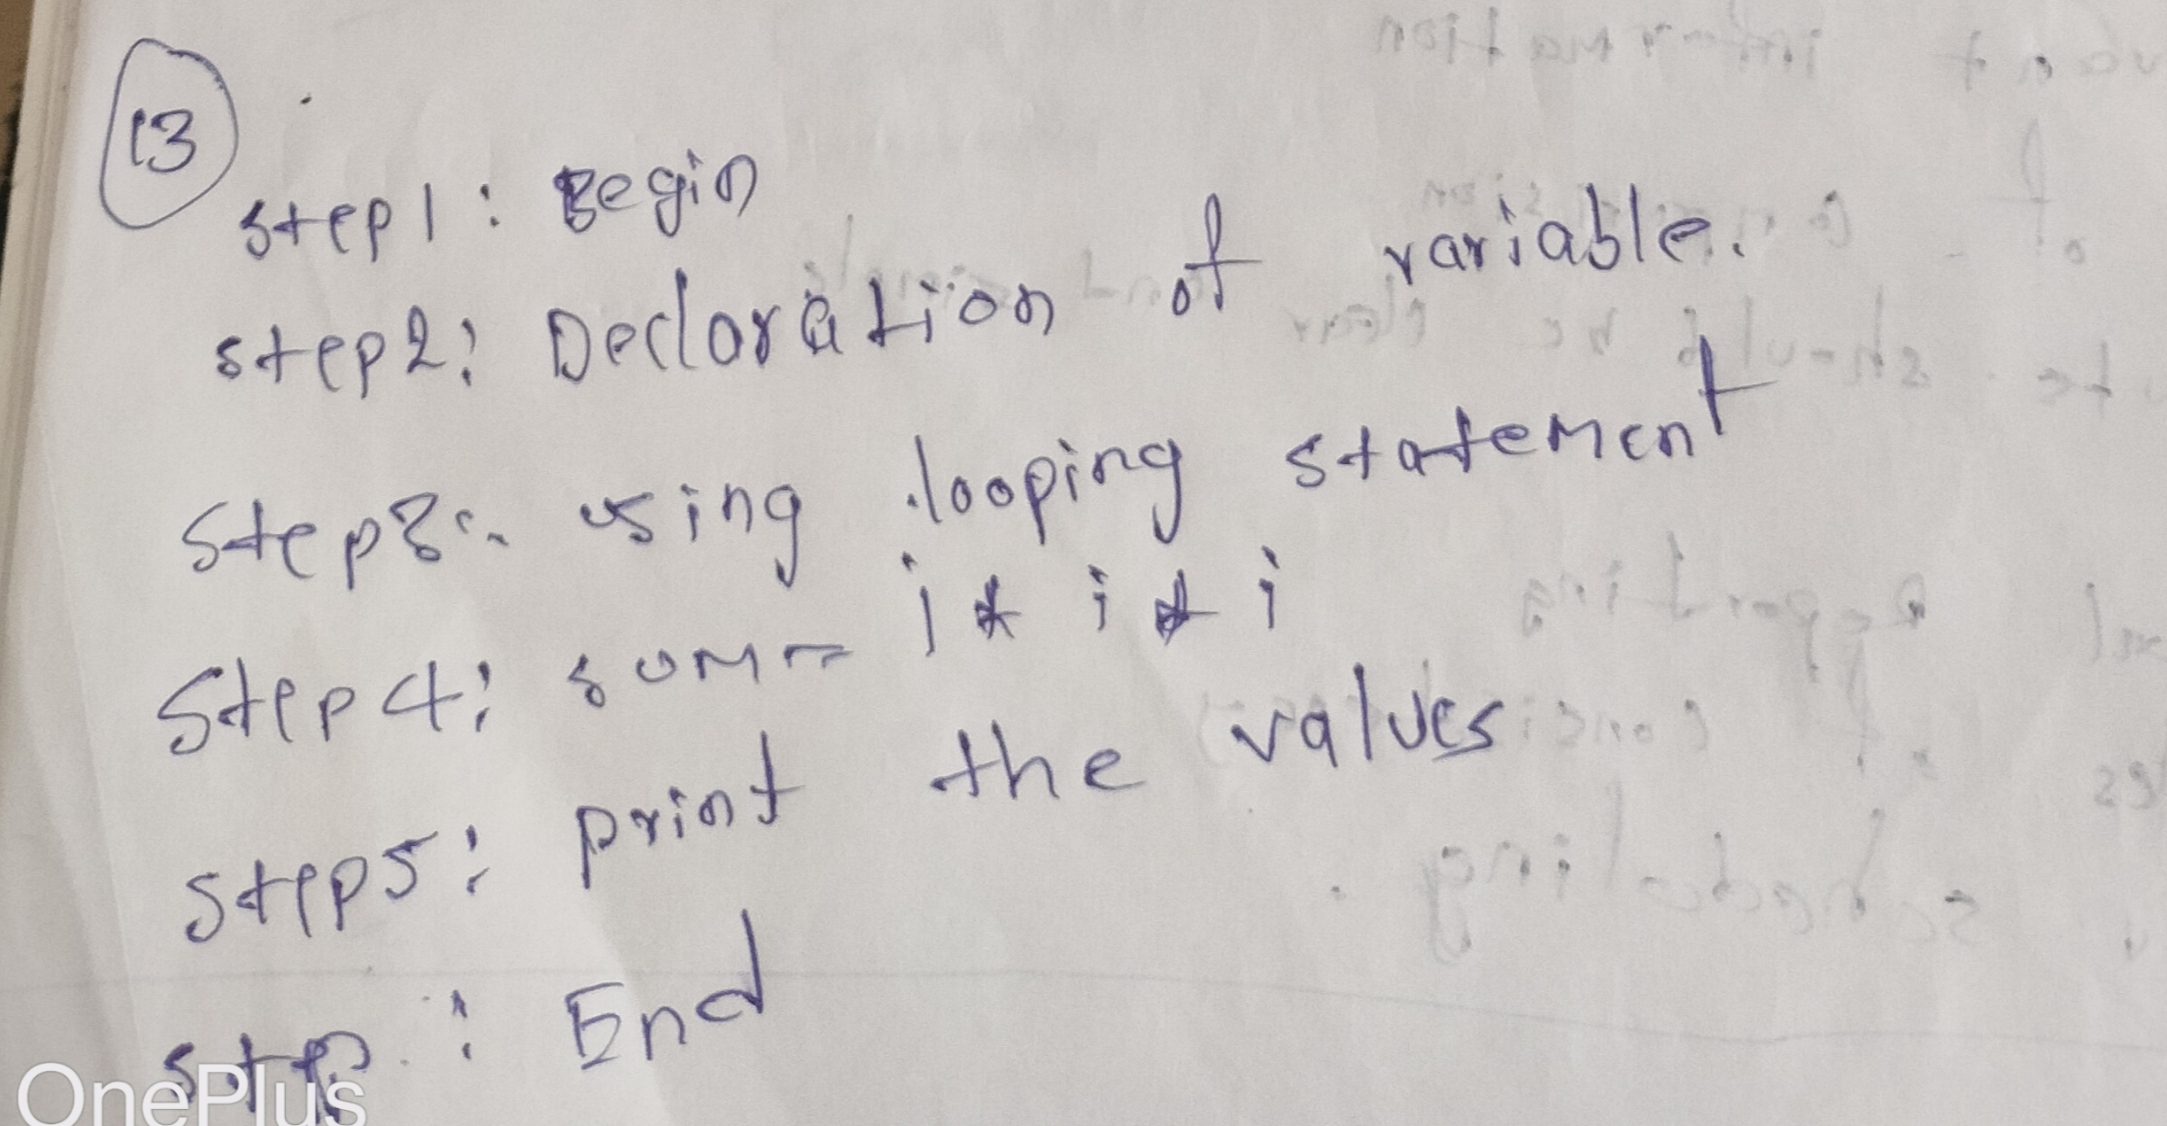 13
step1: Begin
step2: Declaration of variable.
Step3:. using looping statement
Step4: sum = i * i * i
Step5: print the values
step : End
OnePlus